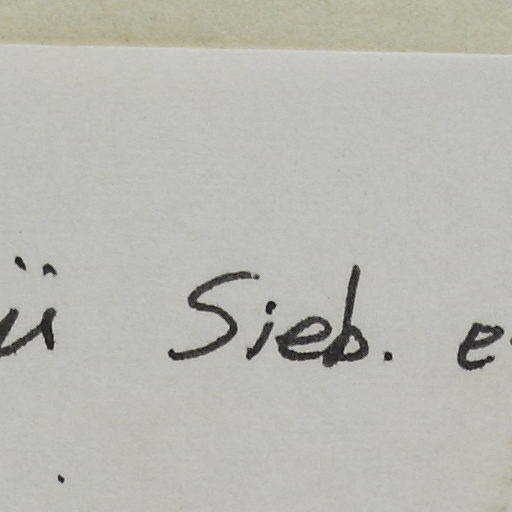 ü Sieb. e